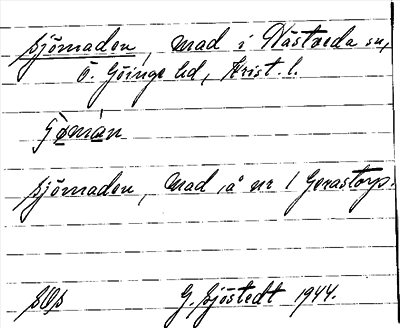 Sjömaden, mad i Nästveda sn,
Ö. Göinge hd, Krist. l.
Sjömaden, mad å nr 1 Genastorp.
SOS G. Sjöstedt 1944.